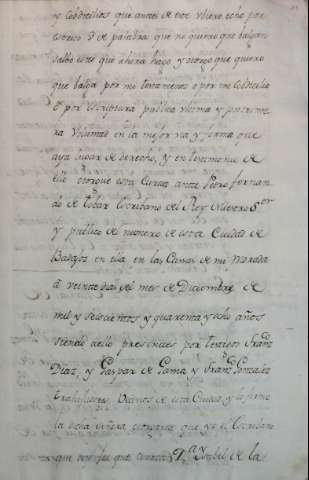 y Cobdicilios que antes de este Ubiere echo por
escrito o de palabra que no quiero que balgan
salbo este que ahora hago y otorgo que quiero
que balga por mi testamento o por mi Cobdicilio
o por escriptura publica ultima y postrime
ra Voluntad en la mejor via y forma que
aya lugar de derecho, y en testimonio de
ello otorgue esta Carta ante Pedro fernan
do de tobar Escribano del Rey Nuestro Sor
y publico del numero de esta Ciudad de
Badajoz en ella en las Casas de mi Morada
a veinte dias del mes de Diciembre de
mil y seiscientos y quarenta y ocho años
siendo dello presentes por testigos Franco
Diaz, y Gaspar de Lama y Franco Gonzalez
trabajadores Vecinos de esta Ciudad y lo firmo
la dicha Señora otorgante que yo el Escribano
que doy fee que conozco Da Isabel de la